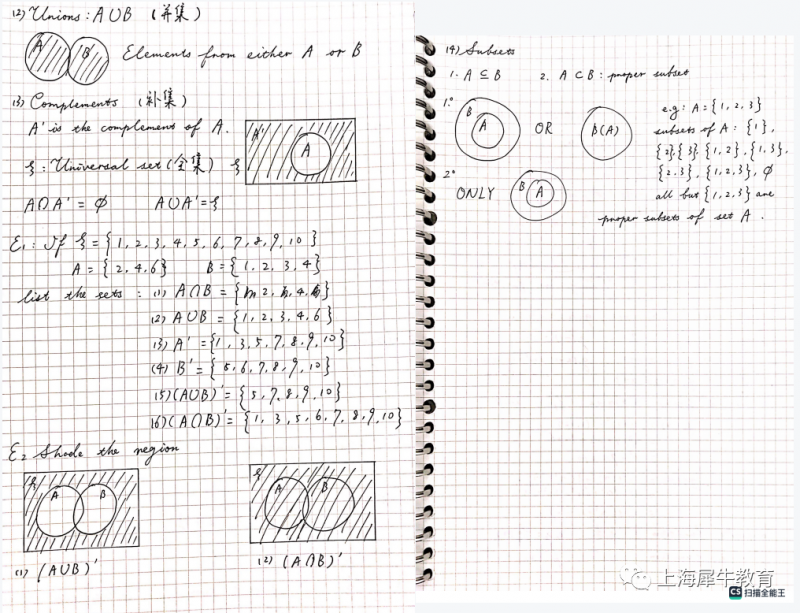 12) Unions: A∪B (并集)
A B Elements from either A or B
13) Complements (补集)
A' is the complement of A.
ξ: Universal set (全集) ξ A' A
A∩A' = ∅ A∪A' = ξ
E₁: If ξ = {1, 2, 3, 4, 5, 6, 7, 8, 9, 10}
A = {2, 4, 6} B = {1, 2, 3, 4}
list the sets: (1) A∩B = {2, 4}
(2) A∪B = {1, 2, 3, 4, 6}
(3) A' = {1, 3, 5, 7, 8, 9, 10}
(4) B' = {5, 6, 7, 8, 9, 10}
(5) (A∪B)' = {5, 7, 8, 9, 10}
(6) (A∩B)' = {1, 3, 5, 6, 7, 8, 9, 10}
E₂ Shade the region
ξ A B
ξ A B
(1) (A∪B)'
(2) (A∩B)'
14) Subsets
1. A ⊆ B 2. A ⊂ B: proper subset
1° B A OR B(A)
e.g: A = {1, 2, 3}
subsets of A: {1},
{2}, {3}, {1, 2}, {1, 3},
{2, 3}, {1, 2, 3}, ∅
all but {1, 2, 3} are
proper subsets of set A.
2°
ONLY B A
上海犀牛教育
CS 扫描全能王